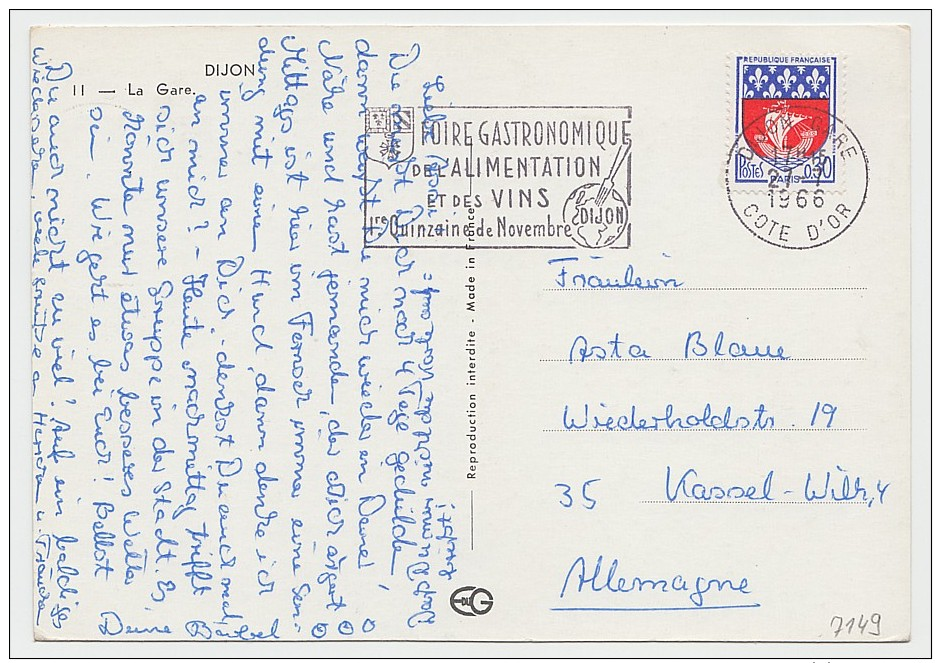 DIJON
11 — La Gare.
Liebe
Du mußt Dich nur 4 Tage gedulden
dann
Nähe und hast jemanden, der Dich ärgert
Mittags ist hier im Fernseh immer eine Sen-
dung mit einem Hund, dann denke ich
immer an Dich - denkst Du auch mal
an mich? - Heute nachmittag trifft
sich unsere Gruppe in der Stadt. Es
könnte nur etwas besseres Wetter
sein. Wie geht es bei Euch? Bellst
Du auch nicht zu viel? Auf ein baldiges
Wiedersehen, viele Grüße a
Deine Bärbel
FOIRE GASTRONOMIQUE
DE L'ALIMENTATION
ET DES VINS
1re Quinzaine de Novembre
DIJON
REPUBLIQUE FRANÇAISE
POSTES PARIS 0,30
DIJON GARE
1966
COTE D'OR
Reproduction interdite - Made in France
Fräulein
Asta Blaue
Wiederholdstr. 19
35 Kassel-Wilh,
Allemagne
7149